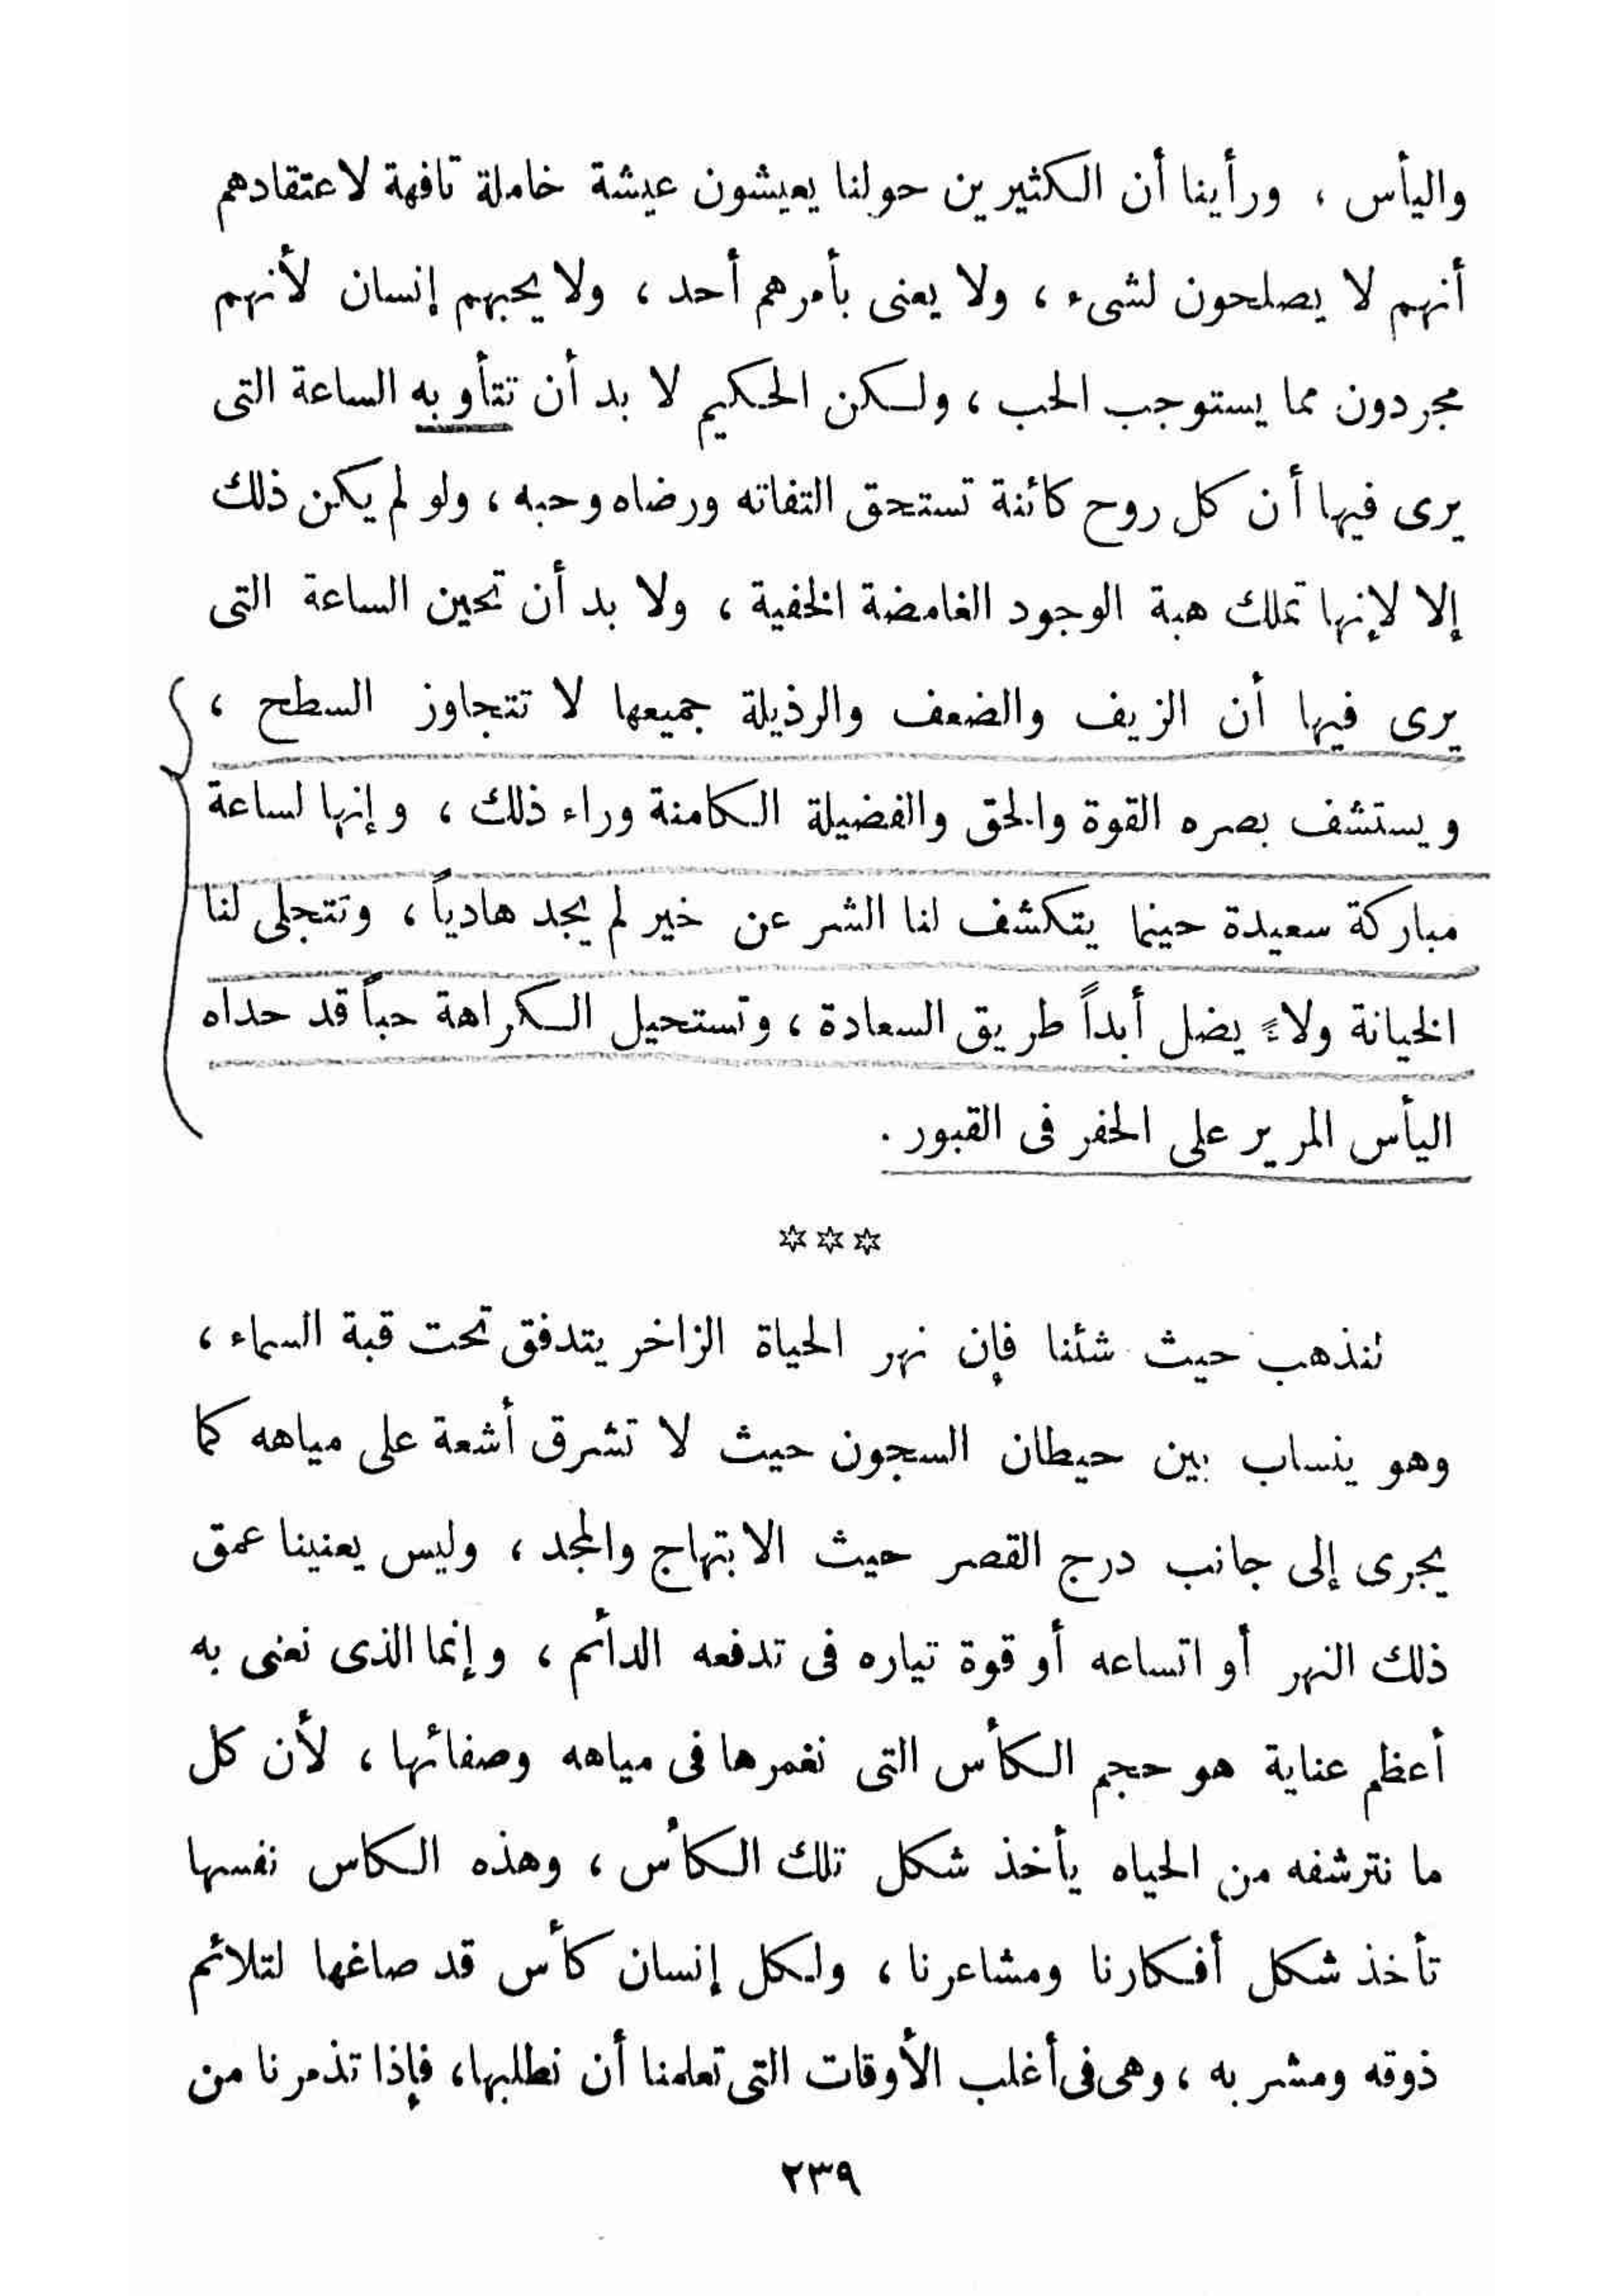 واليأس ، ورأينا أن الكثيرين حولنا يعيشون عيشة خاملة تافهة لاعتقادهم
أنهم لا يصلحون لشىء ، ولا يعنى بأمرهم أحد ، ولا يحبهم إنسان لأنهم
مجردون مما يستوجب الحب ، ولكن الحكيم لا بد أن تتأوبه الساعة التى
يرى فيها أن كل روح كائنة تستحق التفاته ورضاه وحبه ، ولو لم يكن ذلك
إلا لإنها تملك هبة الوجود الغامضة الخفية ، ولا بد أن تحين الساعة التى
يرى فيها أن الزيف والضعف والرذيلة جميعها لا تتجاوز السطح ،
ويستشف بصره القوة والحق والفضيلة الكامنة وراء ذلك ، وإنها لساعة
مباركة سعيدة حينما يتكشف لنا الشر عن خير لم يجد هادياً ، وتتجلى لنا
الخيانة ولاءً يضل أبداً طريق السعادة ، وتستحيل الكراهة حباً قد حداه
اليأس المرير على الحفر فى القبور .
***
لنذهب حيث شئنا فإن نهر الحياة الزاخر يتدفق تحت قبة السماء ،
وهو ينساب بين حيطان السجون حيث لا تشرق أشعة على مياهه كما
يجرى إلى جانب درج القصر حيث الابتهاج والمجد ، وليس يعنينا عمق
ذلك النهر أو اتساعه أو قوة تياره فى تدفعه الدأئم ، وإنما الذى نعنى به
أعظم عناية هو حجم الكأس التى نغمرها فى مياهه وصفائها ، لأن كل
ما نترشفه من الحياه يأخذ شكل تلك الكأس ، وهذه الكاس نفسها
تأخذ شكل أفكارنا ومشاعرنا ، ولكل إنسان كأس قد صاغها لتلائم
ذوقه ومشربه ، وهى فى أغلب الأوقات التى تعلمنا أن نطلبها، فإذا تذمرنا من
٢٣٩